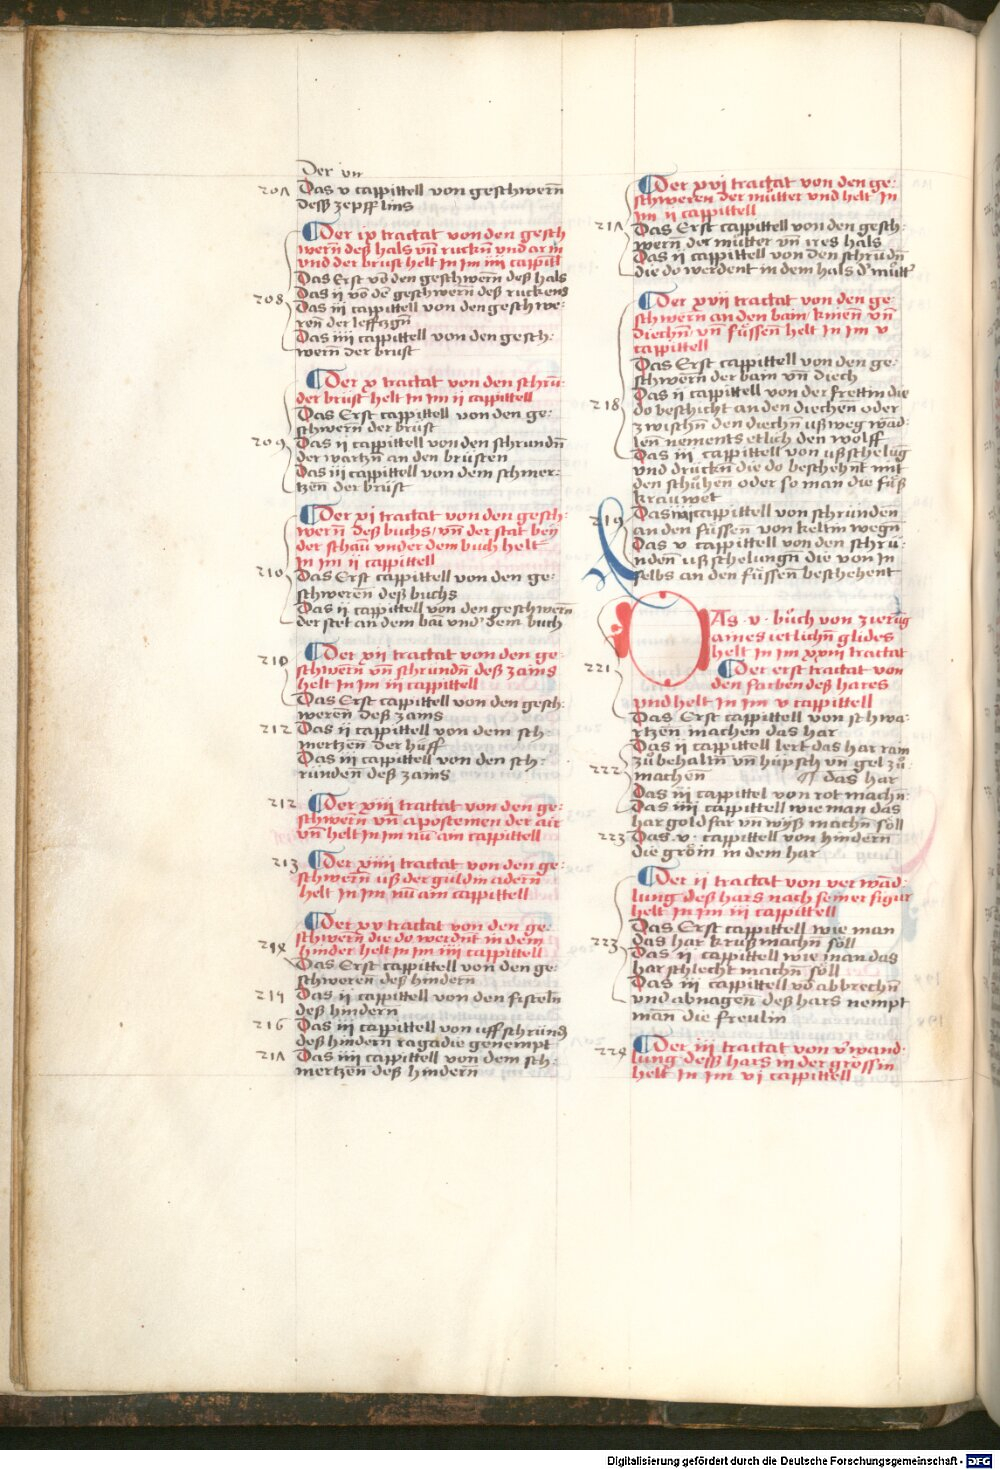 Der vii
207 Das v cappittell von geschwern̄
desß zepfflins
Der ix tractat von den gesch
wern̄ deß hals vn̄ ruckn̄ vnd arm
vnd der brust helt In Im iiii cappitt
Das Erst vō den geschwern̄ deß hals
Das ii vō dē geschwern̄ deß ruckens
208 Das iii cappittell von den geschwe-
ren̄ der leffczgn̄
Das iiii cappittell von den gesch-
wern̄ der brust
Der x tractat von den schrū-
der brust helt In Im ii cappittell
Das Erst cappittell von den ge-
schwern̄ der brüst
209 Das ii cappittell von den schrundn̄
der wartzn̄ an den brüsten
Das iii cappittell von dem schmer-
tzen̄ der brüst
Der xi tractat von den gesch-
wern̄ deß buchs vn̄ der stat beÿ
der scham̄ vnder dem buch helt
In Im ii cappittell
210 Das Erst cappittell von den ge-
schweren̄ deß buchs
Das ii cappittell von den geschwern̄
der stet an dem bam vnd dem buch
210 Der xii tractat von den ge
schwern̄ vn̄ schrundn̄ deß zams
helt In Im iii cappittell
Das Erst cappittell von den gesch-
weren̄ deß zams
212 Das ii cappittell von dem sch-
mertzen̄ der hüff
Das iii cappittell von den sch-
runden̄ deß zams
212 Der xiii tractat von den ge-
schwern̄ vn̄ apostemen der air
vn̄ helt In Im nū am cappittell
213 Der xiiii tractat von den ge-
schwern̄ uß der guldin adern̄
helt In Im nū am cappittell
Der xv tractat von den ge-
214 schwern̄ die do werdn̄t in dem
hinder helt In Im iiii cappittell
Das Erst cappittell von den ge
schweren̄ deß hindern̄
214 Das ii cappittell von den fisteln̄
deß hindern
216 Das iii cappittell von uff schrūnd
deß hindern̄ ragadie genempt
217 Das iiii cappittell von dem sch-
mertzen̄ deß hindern̄
Der xvi tractat von den ge-
schweren der mütter vnd helt In
Im ii cappittell
217 Das Erst cappittell von den gesch-
wern̄ der mütter vn̄ ires hals
Das ii cappittell von den schrudn̄
die do werdent in dem hals d' mütt'
Der xvii tractat von den ge-
schwern̄ an den bam knien̄ vn̄
diechn̄ vn̄ füssen̄ helt In Im v
cappittell
Das Erst cappittell von den ge-
schwern̄ der bam vn̄ diech
Das ii cappittell von der frettin die
218 do beschicht an den diechen̄ oder
zwischn̄ den diechn̄ ußweg wād-
len̄ nements etlich den wolff
Das iii cappittell von ußschelūg
vnd druckn̄ die do beschehnt mit
den schůhen̄ oder so man die füß
krauwet
219 Das iiii cappittell von schrunden̄
an den füssen̄ von keltin wegn̄
Das v cappittell von den schrū-
nden̄ uß schelungn̄ die von In
selbs an den füssen̄ beschehent
DAs · v · bůch von zierūg
ames ietlichn̄ glides
helt in Im xxiii tractat
221 Der erst tractat von
den farben deß hares
vnd helt In Im v cappittell
Das Erst cappittell von schwa-
rtzen̄ machen das har
Das ii cappittell lert das har rain
zů behaltn̄ vn̄ hüpsch vn̄ gel zů
222 machen̄ ¶ das har
Das iii cappittel von rot machn̄
Das iiii cappittell wie man das
har goldfar vn̄ wÿß machn̄ söll
223 Das · v · cappittell von hindern̄
die gröin in dem har
Der ii tractat von ver wād-
lung deß hars nach seiner figur
helt in Im iii cappittell
Das Erst cappittell wie man
223 das har kruß machn̄ söll
Das ii cappittell wie man das
har schlecht machn̄ söll
Das iii cappittell vō abbrechn̄
vnd abnagen̄ deß hars nempt
man die freulin
224 Der iii tractat von v'wand-
lung desß hars in der grossin
helt In Im vi cappittell
Digitalisierung gefördert durch die Deutsche Forschungsgemeinschaft - DFG